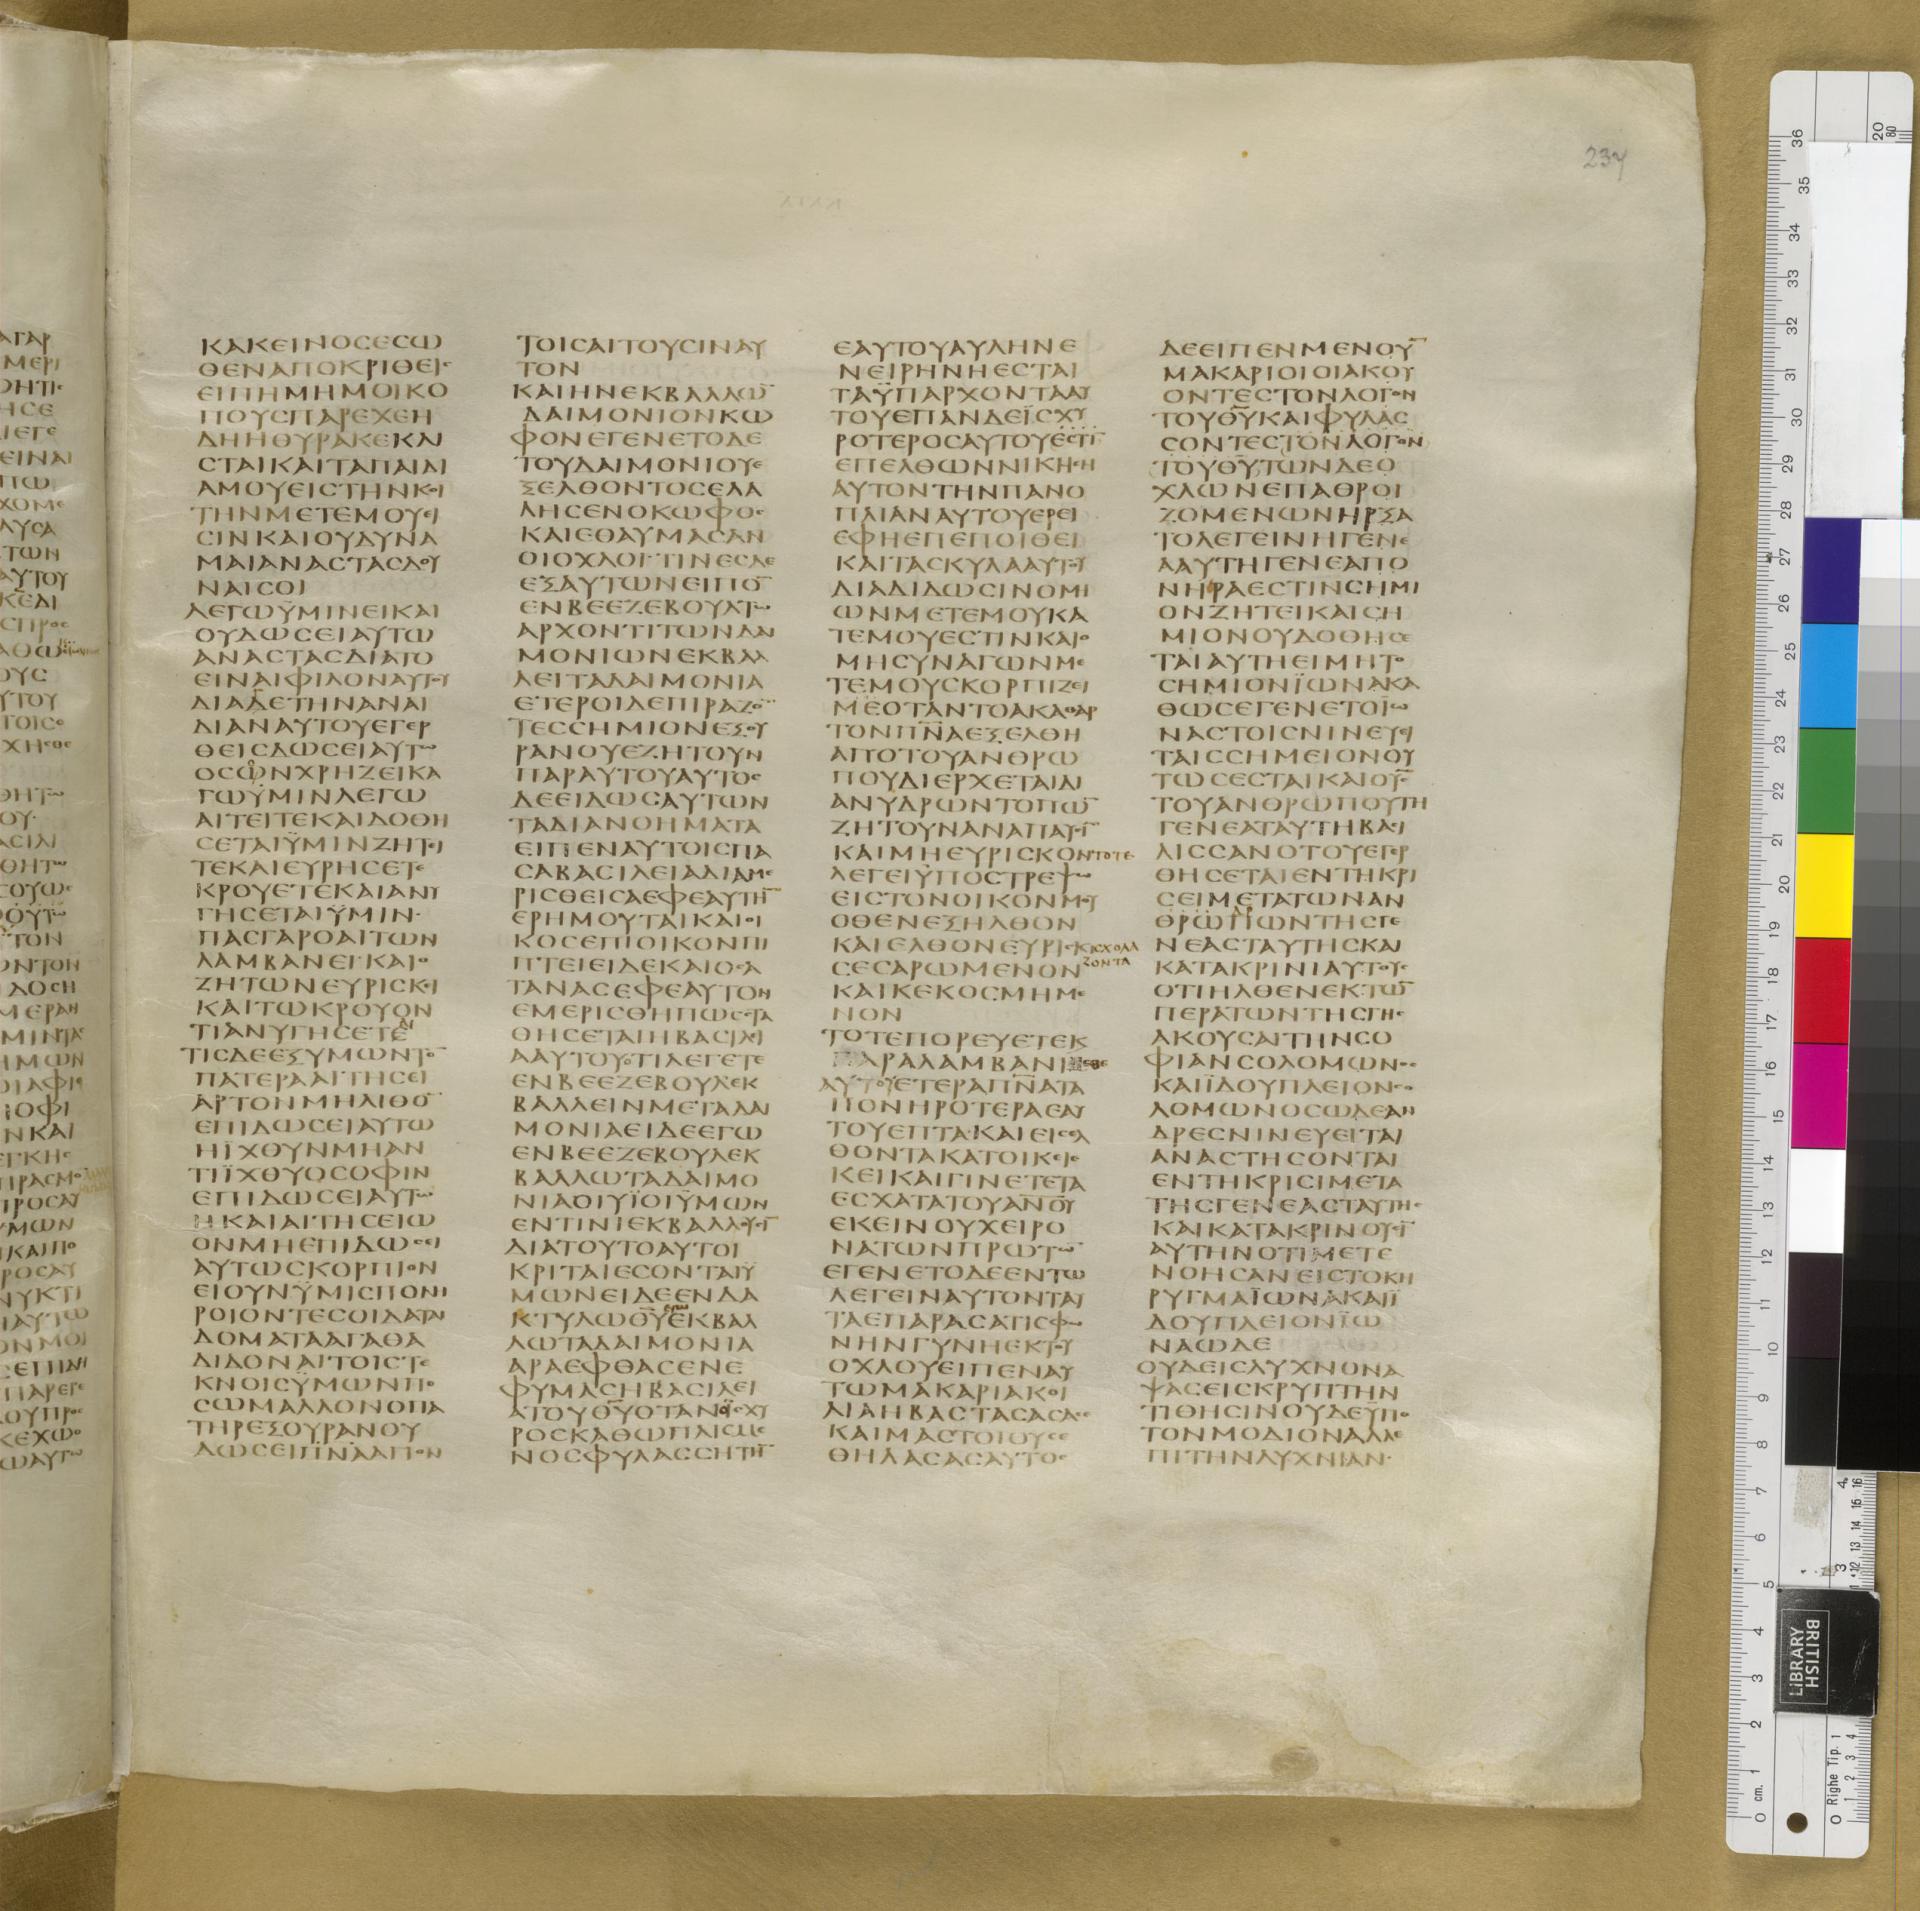 237
ΚΑΚΕΙΝΟϹΕϹΩ
ΘΕΝΑΠΟΚΡΙΘΕΙϹ
ΕΙΠΗΜΗΜΟΙΚΟ
ΠΟΥϹΠΑΡΕΧΕΗ
ΔΗΗΘΥΡΑΚΕΚΛΙ
ϹΤΑΙΚΑΙΤΑΠΑΙΔΙ
ΑΜΟΥΕΙϹΤΗΝΚΟΙ
ΤΗΝΜΕΤΕΜΟΥΕΙ
ϹΙΝΚΑΙΟΥΔΥΝΑ
ΜΑΙΑΝΑϹΤΑϹΔΟΥ
ΝΑΙϹΟΙ
ΛΕΓΩΫΜΙΝΕΙΚΑΙ
ΟΥΔΩϹΕΙΑΥΤΩ
ΑΝΑϹΤΑϹΔΙΑΤΟ
ΕΙΝΑΙΦΙΛΟΝΑΥΤΟΥ
ΔΙΑΔΕΤΗΝΑΝΑΙ
ΔΙΑΝΑΥΤΟΥΕΓΕΡ
ΘΕΙϹΔΩϹΕΙΑΥΤΩ
ΟϹΩΝΧΡΗΖΕΙΚΑ
ΓΩΫΜΙΝΛΕΓΩ
ΑΙΤΕΙΤΕΚΑΙΔΟΘΗ
ϹΕΤΑΙΫΜΙΝΖΗΤΕΙ
ΤΕΚΑΙΕΥΡΗϹΕΤΕ
ΚΡΟΥΕΤΕΚΑΙΑΝΥ
ΓΗϹΕΤΑΙΫΜΙΝ·
ΠΑϹΓΑΡΟΑΙΤΩΝ
ΛΑΜΒΑΝΕΙ·ΚΑΙΟ
ΖΗΤΩΝΕΥΡΙϹΚΕΙ
ΚΑΙΤΩΚΡΟΥΟΝ
ΤΙΑΝΥΓΗϹΕΤΕ
ΤΙϹΔΕΕΞΥΜΩΝΤΟ̅
ΠΑΤΕΡΑΑΙΤΗϹΕΙ
ΑΡΤΟΝΜΗΛΙΘΟ̅
ΕΠΙΔΩϹΕΙΑΥΤΩ
ΗΪΧΘΥΝΜΗΑΝ
ΤΙΪΧΘΥΟϹΟΦΙΝ
ΕΠΙΔΩϹΕΙΑΥΤΩ
ΗΚΑΙΑΙΤΗϹΕΙΩ
ΟΝΜΗΕΠΙΔΩϹΕΙ
ΑΥΤΩϹΚΟΡΠΙΟΝ
ΕΙΟΥΝΫΜΙϹΠΟΝΗ
ΡΟΙΟΝΤΕϹΟΙΔΑΤΑΙ
ΔΟΜΑΤΑΑΓΑΘΑ
ΔΙΔΟΝΑΙΤΟΙϹΤΕ
ΚΝΟΙϹΫΜΩΝΠΟ
ϹΩΜΑΛΛΟΝΟΠΑ
ΤΗΡΕΞΟΥΡΑΝΟΥ
ΔΩϹΕΙΠΝ̅ΑΑΓΙΟΝ
ΤΟΙϹΑΙΤΟΥϹΙΝΑΥ
ΤΟΝ
ΚΑΙΗΝΕΚΒΑΛΛΩ̅
ΔΑΙΜΟΝΙΟΝΚΩ
ΦΟΝΕΓΕΝΕΤΟΔΕ
ΤΟΥΔΑΙΜΟΝΙΟΥΕ
ΞΕΛΘΟΝΤΟϹΕΛΑ
ΛΗϹΕΝΟΚΩΦΟϹ
ΚΑΙΕΘΑΥΜΑϹΑΝ
ΟΙΟΧΛΟΙ·ΤΙΝΕϹΔΕ
ΕΞΑΥΤΩΝΕΙΠΟ̅
ΕΝΒΕΕΖΕΒΟΥΛΤΩ
ΑΡΧΟΝΤΙΤΩΝΔΑΙ
ΜΟΝΙΩΝΕΚΒΑΛ
ΛΕΙΤΑΔΑΙΜΟΝΙΑ
ΕΤΕΡΟΙΔΕΠΙΡΑΖΟ̅
ΤΕϹϹΗΜΙΟΝΕΞΟΥ
ΡΑΝΟΥΕΖΗΤΟΥΝ
ΠΑΡΑΥΤΟΥΑΥΤΟϹ
ΔΕΕΙΔΩϹΑΥΤΩΝ
ΤΑΔΙΑΝΟΗΜΑΤΑ
ΕΙΠΕΝΑΥΤΟΙϹΠΑ
ϹΑΒΑϹΙΛΕΙΑΔΙΑΜΕ
ΡΙϹΘΕΙϹΑΕΦΕΑΥΤΗ̅
ΕΡΗΜΟΥΤΑΙΚΑΙΟΙ
ΚΟϹΕΠΙΟΙΚΟΝΠΙ
ΠΤΕΙΕΙΔΕΚΑΙΟϹΑ
ΤΑΝΑϹΕΦΕΑΥΤΟΝ
ΕΜΕΡΙϹΘΗΠΩϹϹΤΑ
ΘΗϹΕΤΑΙΗΒΑϹΙΛΕΙ
ΑΑΥΤΟΥΟΤΙΛΕΓΕΤΕ
ΕΝΒΕΕΖΕΒΟΥΛΕΚ
ΒΑΛΛΕΙΝΜΕΤΑΔΑΙ
ΜΟΝΙΑΕΙΔΕΕΓΩ
ΕΝΒΕΕΖΕΒΟΥΛΕΚ
ΒΑΛΛΩΤΑΔΑΙΜΟ
ΝΙΑΟΙΥΪΟΙΫΜΩΝ
ΕΝΤΙΝΙΕΚΒΑΛΛΟΥϹΙ̅
ΔΙΑΤΟΥΤΟΑΥΤΟΙ
ΚΡΙΤΑΙΕϹΟΝΤΑΙΫ
ΜΩΝΕΙΔΕΕΝΔΑ
ΚΤΥΛΩΘ̅Υ̅ΕΓΩΕΚΒΑΛ
ΛΩΤΑΔΑΙΜΟΝΙΑ
ΑΡΑΕΦΘΑϹΕΝΕ
ΦΥΜΑϹΗΒΑϹΙΛΕΙ
ΑΤΟΥΘ̅Υ̅ΟΤΑΝΟΪϹΧΥ
ΡΟϹΚΑΘΩΠΛΙϹΜΕ
ΝΟϹΦΥΛΑϹϹΗΤΗ̅
ΕΑΥΤΟΥΑΥΛΗΝΕ
ΝΕΙΡΗΝΗΕϹΤΑΙ
ΤΑΫΠΑΡΧΟΝΤΑΑΥ
ΤΟΥΕΠΑΝΔΕΪϹΧΥ
ΡΟΤΕΡΟϹΑΥΤΟΥΕϹΤΙ̅
ΕΠΕΛΘΩΝΝΙΚΗϹΗ
ΑΥΤΟΝΤΗΝΠΑΝΟ
ΠΛΙΑΝΑΥΤΟΥΕΡΕΙ
ΕΦΗΕΠΕΠΟΙΘΕΙ
ΚΑΙΤΑϹΚΥΛΑΑΥΤΟΥ
ΔΙΑΔΙΔΩϹΙΝΟΜΗ
ΩΝΜΕΤΕΜΟΥΚΑ
ΤΕΜΟΥΕϹΤΙΝΚΑΙΟ
ΜΗϹΥΝΑΓΩΝΜΕ
ΤΕΜΟΥϹΚΟΡΠΙΖΕΙ
ΜΕΟΤΑΝΤΟΑΚΑΘΑΡ
ΤΟΝΠ̅Ν̅ΑΕΞΕΛΘΗ
ΑΠΟΤΟΥΑΝΘΡΩ
ΠΟΥΔΙΕΡΧΕΤΑΙΔΙ
ΑΝΥΔΡΩΝΤΟΠΩ̅
ΖΗΤΟΥΝΑΝΑΠΑΥϹΙ̅
ΚΑΙΜΗΕΥΡΙϹΚΟΝΤΟΤΕ
ΛΕΓΕΙΫΠΟϹΤΡΕΨΩ
ΕΙϹΤΟΝΟΙΚΟΝΜΟΥ
ΟΘΕΝΕΞΗΛΘΟΝ
ΚΑΙΕΛΘΟΝΕΥΡΙϹΚΙ ϹΧΟΛΑ
ϹΕϹΑΡΩΜΕΝΟΝ ΖΟΝΤΑ
ΚΑΙΚΕΚΟϹΜΗΜΕ
ΝΟΝ
ΤΟΤΕΠΟΡΕΥΕΤΕΚ
ΠΑΡΑΛΑΜΒΑΝΙ
ΑΥΤΟΥΕΤΕΡΑΠ̅Ν̅ΑΤΑ
ΠΟΝΗΡΟΤΕΡΑΕΑΥ
ΤΟΥΕΠΤΑ·ΚΑΙΕΙϹΕΛ
ΘΟΝΤΑΚΑΤΟΙΚΕΙΕ
ΚΕΙΚΑΙΓΙΝΕΤΕΤΑ
ΕϹΧΑΤΑΤΟΥΑ̅Ν̅Ο̅Υ̅
ΕΚΕΙΝΟΥΧΕΙΡΟ
ΝΑΤΩΝΠΡΩΤΩ̅
ΕΓΕΝΕΤΟΔΕΕΝΤΩ
ΛΕΓΕΙΝΑΥΤΟΝΤΑΥ
ΤΑΕΠΑΡΑϹΑΤΙϹΦΩ
ΝΗΝΓΥΝΗΕΚΤΟΥ
ΟΧΛΟΥΕΙΠΕΝΑΥ
ΤΩΜΑΚΑΡΙΑΚΟΙ
ΛΙΑΗΒΑϹΤΑϹΑϹΑϹΕ
ΚΑΙΜΑϹΤΟΙΟΥϹΕ
ΘΗΛΑϹΑϹΑΥΤΟϹ
ΔΕΕΙΠΕΝΜΕΝΟΥ̅
ΜΑΚΑΡΙΟΙΟΙΑΚΟΥ
ΟΝΤΕϹΤΟΝΛΟΓΟΝ
ΤΟΥΘ̅Υ̅ΚΑΙΦΥΛΑϹ
ϹΟΝΤΕϹΤΟΝΛΟΓΟΝ
ΤΟΥΘ̅Υ̅ΤΩΝΔΕΟ
ΧΛΩΝΕΠΑΘΡΟΙ
ΖΟΜΕΝΩΝΗΡΞΑ
ΤΟΛΕΓΕΙΝΗΓΕΝΕ
ΑΑΥΤΗΓΕΝΕΑΠΟ
ΝΗΡΑΕϹΤΙΝϹΗΜΙ
ΟΝΖΗΤΕΙΚΑΙϹΗ
ΜΙΟΝΟΥΔΟΘΗϹΕ
ΤΑΙΑΥΤΗΕΙΜΗΤΟ
ϹΗΜΙΟΝΪΩΝΑΚΑ
ΘΩϹΕΓΕΝΕΤΟΪΩ
ΝΑϹΤΟΙϹΝΙΝΕΥΕΙ
ΤΑΙϹϹΗΜΕΙΟΝΟΥ
ΤΩϹΕϹΤΑΙΚΑΙΟΥ̅Ϲ̅
ΤΟΥΑΝΘΡΩΠΟΥΤΗ
ΓΕΝΕΑΤΑΥΤΗΒΑϹΙ
ΛΙϹϹΑΝΟΤΟΥΕΓΕΡ
ΘΗϹΕΤΑΙΕΝΤΗΚΡΙ
ϹΕΙΜΕΤΑΤΩΝΑΝ
ΘΡΩΠΩΝΤΗϹΓΕ
ΝΕΑϹΤΑΥΤΗϹΚΑΙ
ΚΑΤΑΚΡΙΝΙΑΥΤΟΥϹ
ΟΤΙΗΛΘΕΝΕΚΤΩ̅
ΠΕΡΑΤΩΝΤΗϹΓΗϹ
ΑΚΟΥϹΑΙΤΗΝϹΟ
ΦΙΑΝϹΟΛΟΜΩΝΟϹ
ΚΑΙΪΔΟΥΠΛΕΙΟΝϹΟ
ΛΟΜΩΝΟϹΩΔΕΑΝ
ΔΡΕϹΝΙΝΕΥΕΙΤΑΙ
ΑΝΑϹΤΗϹΟΝΤΑΙ
ΕΝΤΗΚΡΙϹΙΜΕΤΑ
ΤΗϹΓΕΝΕΑϹΤΑΥΤΗϹ
ΚΑΙΚΑΤΑΚΡΙΝΟΥϹΙ̅
ΑΥΤΗΝΟΤΙΜΕΤΕ
ΝΟΗϹΑΝΕΙϹΤΟΚΗ
ΡΥΓΜΑΪΩΝΑΚΑΙΪ
ΔΟΥΠΛΕΙΟΝΪΩ
ΝΑΩΔΕ
ΟΥΔΕΙϹΛΥΧΝΟΝΑ
ΨΑϹΕΙϹΚΡΥΠΤΗΝ
ΤΙΘΗϹΙΝΟΥΔΕΫΠΟ
ΤΟΝΜΟΔΙΟΝΑΛΛΕ
ΠΙΤΗΝΛΥΧΝΙΑΝ·
BRITISH
LIBRARY
Righe Tip. 1